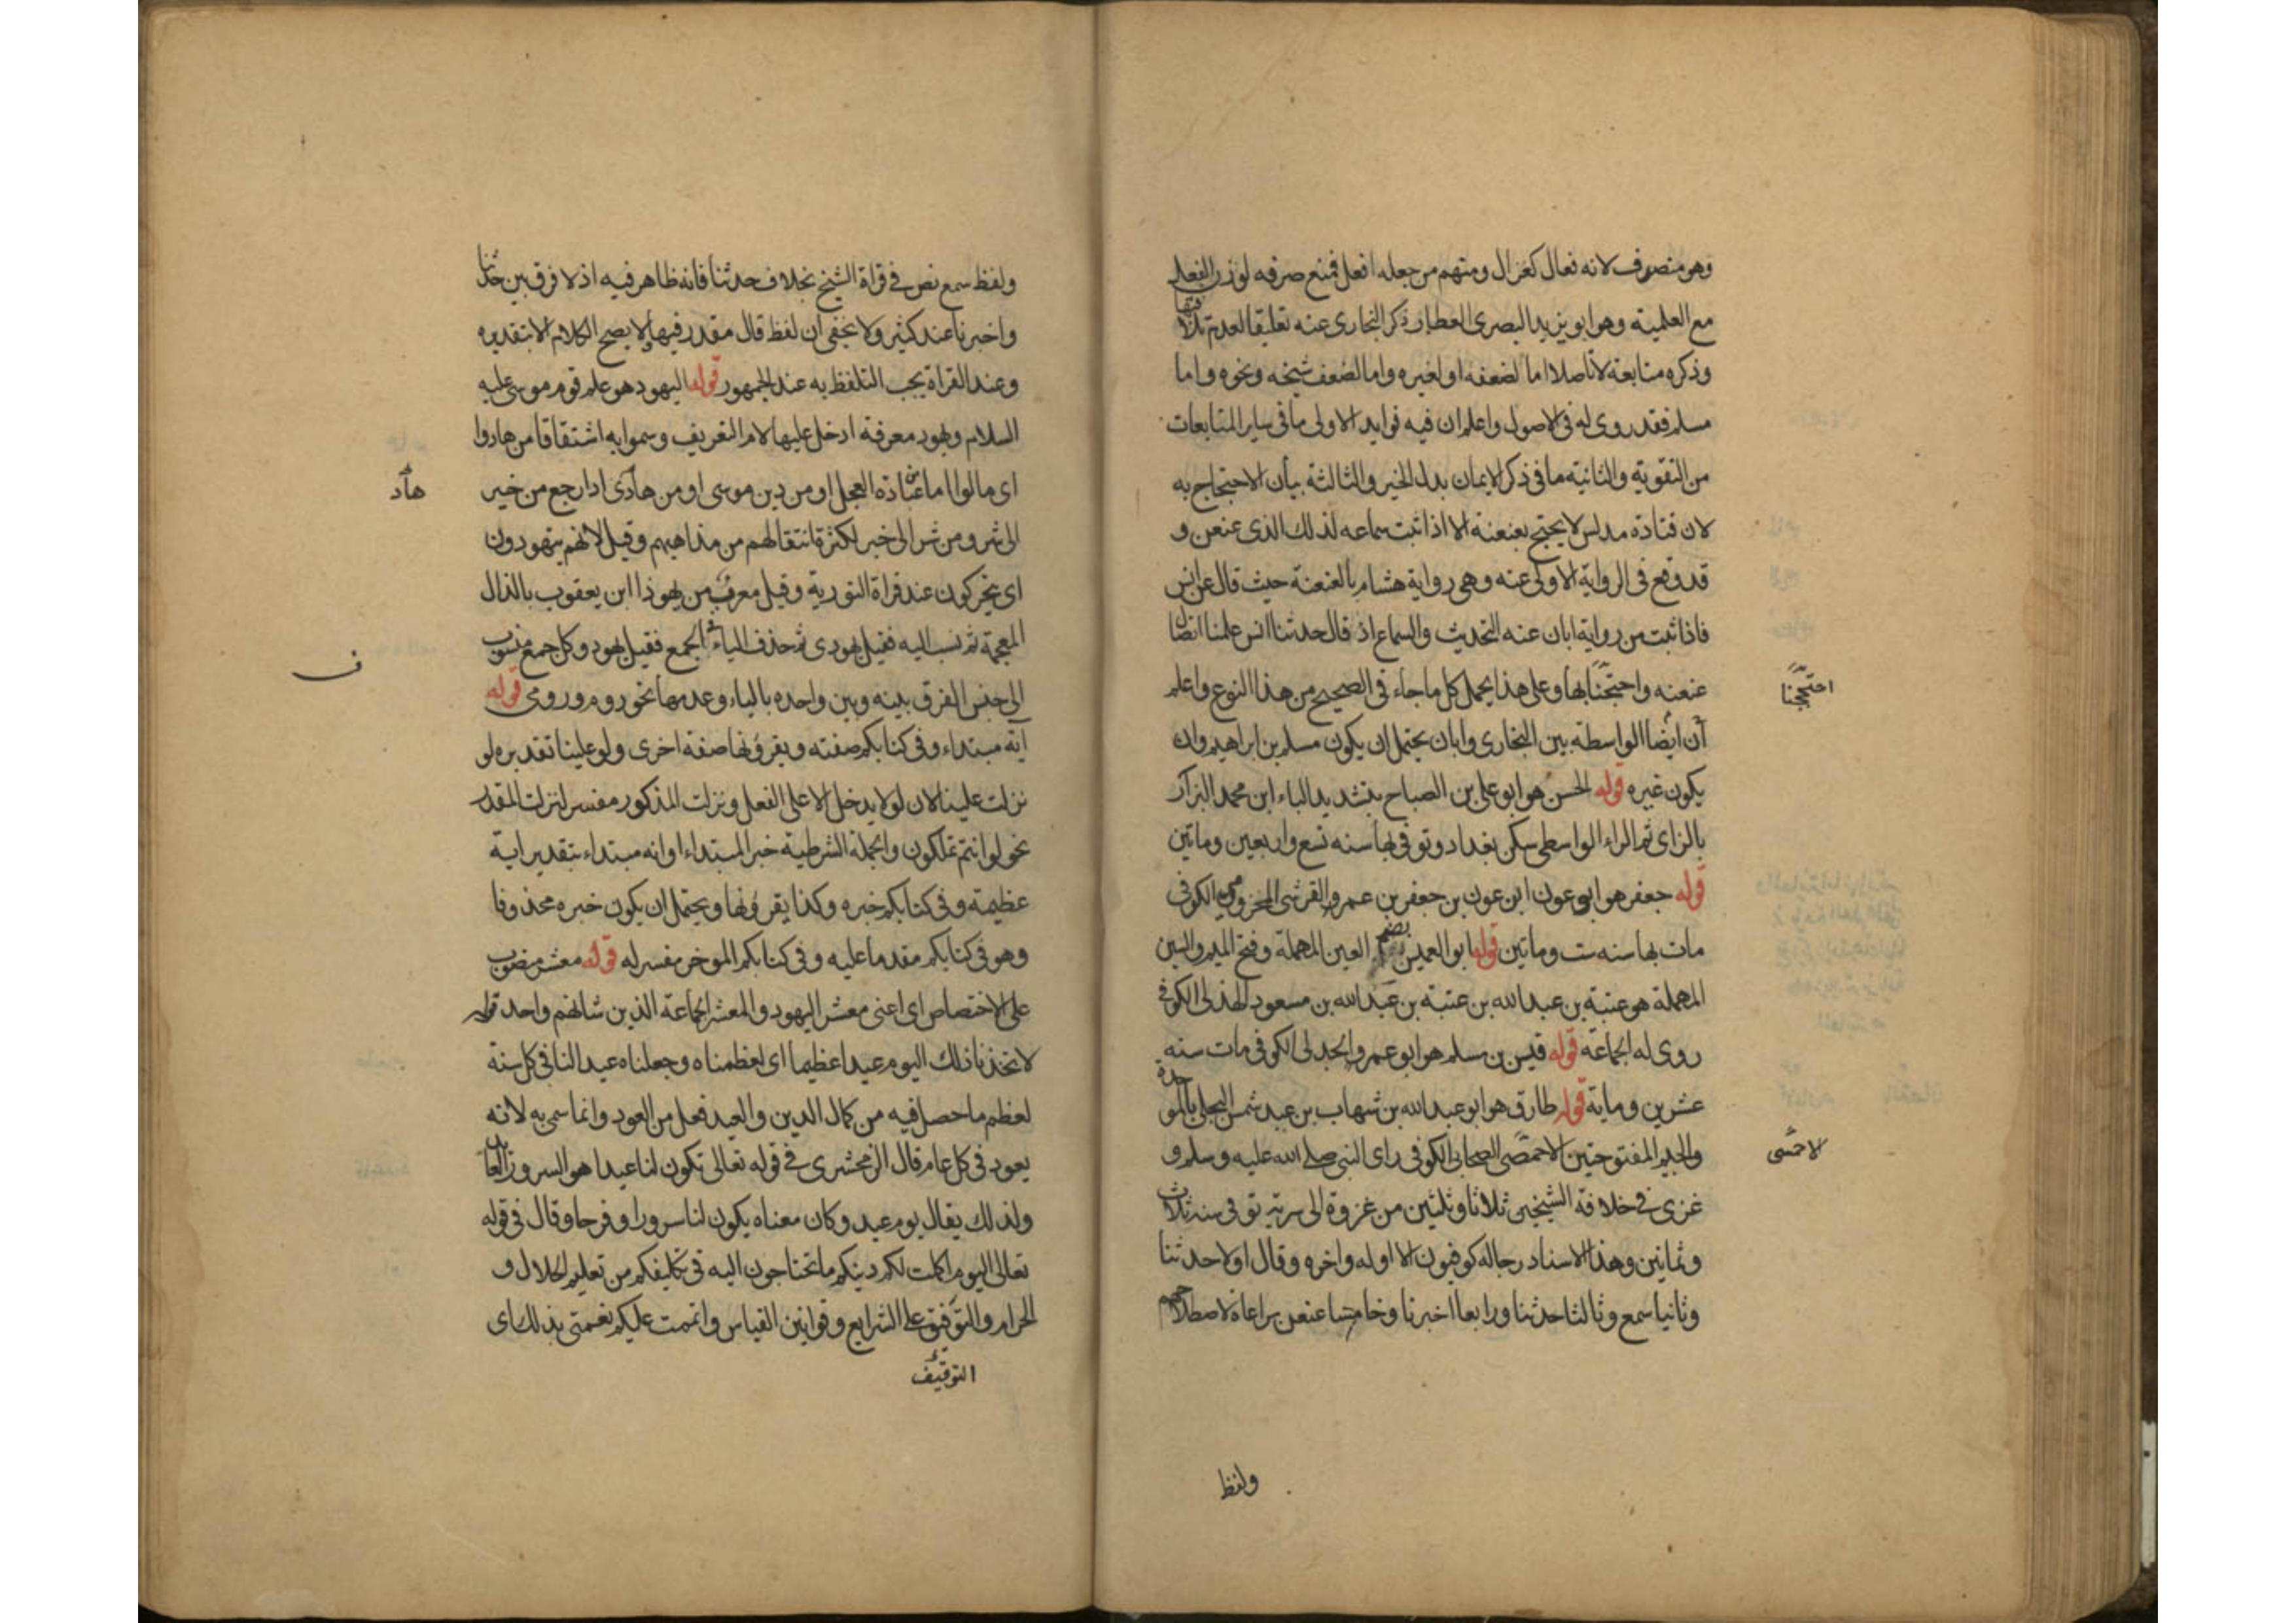 وهو منصرف لانه فعال كغزال ومنهم من جعله افعل فمنع صرفه لوزن الفعل
مع العلمية وهو ابو يزيد البصرى العطار ذكر البخارى عنه تعليقا لعدم تلاقيهما
وذكره متابعة لا تاصلا اما لضعفه او لغيره واما لضعف شيخه ونحوه واما
مسلم فقد روى له فى الاصول واعلم ان فيه فوايد الاولى ما فى ساير المتابعات
من التقوية والثانية ما فى ذكر الايمان بدل الخير والثالثة بيان الاحتجاج به
لان قتادة مدلس لا يحتج بعنعنة الا اذا ثبت سماعه لذلك الذى عنعن و
قد وقع فى الرواية الاولى عنه وهى رواية هشام بالعنعنة حيث قال عن انس
فاذا ثبت من رواية ابان عنه التحديث والسماع اذ قال حدثنا انس علمنا اتصال
عنعنه واحتججنا بها وعلى هذا يحمل كل ما جاء فى الصحيح من هذا النوع واعلم
احتججنا
أن ايضا الواسطة بين البخارى وابان يحتمل ان يكون مسلم بن ابراهيم وان
يكون غيره قوله الحسن هو ابو على بن الصباح بتشديد الباء ابن محمد البزار
بالزاى ثم الراء الواسطى سكن بغداد وتوفى بها سنه تسع واربعين وماتين
قوله جعفر هو ابو عون ابن عون بن جعفر بن عمرو القرشى المخزومى الكوفى
مات بها سنه ست وماتين قوله ابو العميس بضم العين المهملة وفتح الميم والسين
المهملة هو عتبة بن عبد الله بن عتبة بن عبد الله بن مسعود الهذلى الكوفى
روى له الجماعة قوله قيس بن مسلم هو ابو عمرو الجدلى الكوفى مات سنه
عشرين وماية قوله طارق هو ابو عبد الله بن شهاب بن عبد شمس البجلى بالموحدة
والجيم المفتوحتين الاحمصى الصحابى الكوفى راى النبى صلى الله عليه وسلم و
لاحمسى
غزى فى خلافة الشيخين ثلاثا وثلثين من غزوة الى سرية توفى سنه ثلاث
وثمانين وهذا الاسناد رجاله كوفيون الا اوله واخره وقال اولا حدثنا
وثانيا سمع وثالثا حدثنا ورابعا اخبرنا وخامسا عنعن مراعاة لاصطلاحهم
ولفظ
ولفظ سمع نص فى قراة الشيخ بخلاف حدثنا فانه ظاهر فيه اذ لا فرق بين حدثنا
واخبرنا عند كثير ولا يخفى ان لفظ قال مقدر فيها لا يصح الكلام الا بتقديره
وعند القراة يجب التلفظ به عند الجمهور قوله اليهود هو علم قوم موسى عليه
السلام ويهود معرفة ادخل عليها لام التعريف وسموا به اشتقاقا من هادوا
اى مالوا اما عن عبادة العجل او من دين موسى او من هادى اذا رجع من خير
هاد
الى شر ومن شر الى خير لكثرة انتقالهم من مذاهبهم وقيل لانهم يتهودون
اى يتحركون عند قراة التورية وقيل معرب من يهوذا ابن يعقوب بالذال
المعجمة ثم نسب اليه فقيل يهودى ثم حذف الياء فى الجمع فقيل يهود وكل جمع منسوب
ف
الى جنس الفرق بينه وبين واحده بالياء وعدمها نحو روم ورومى قوله
آية مبتداء وفى كتابكم صفته ويقرؤنها صفة اخرى ولو علينا تقديره لو
نزلت علينا لان لو لا يدخل الا على الفعل ونزلت المذكور مفسر لنزلت المقدر
نحو لو انتم تملكون والجملة الشرطية خبر المبتداء او انه مبتداء بتقدير اية
عظيمة وفى كتابكم خبره وكذا يقرؤنها ويحتمل ان يكون خبره محذوفا
وهو فى كتابكم مقدما عليه وفى كتابكم الموخر مفسر له قوله معشر منصوب
على الاختصاص اى اعنى معشر اليهود والمعشر الجماعة الذين شانهم واحد قوله
لاتخذنا ذلك اليوم عيدا عظيما اى لعظمناه وجعلناه عيدا لنا فى كل سنة
لعظم ما حصل فيه من كمال الدين والعيد فعل من العود وانما سمى به لانه
يعود فى كل عام قال الزمخشرى فى قوله تعالى تكون لنا عيدا هو السرور العايد
ولذلك يقال يوم عيد وكان معناه يكون لنا سرورا وفرحا وقال فى قوله
تعالى اليوم اكملت لكم دينكم ما تحتاجون اليه فى تكليفكم من تعليم الحلال و
الحرام والتوفيق على الشرايع وقوانين القياس واتممت عليكم نعمتى بذلك اى
التوقيف